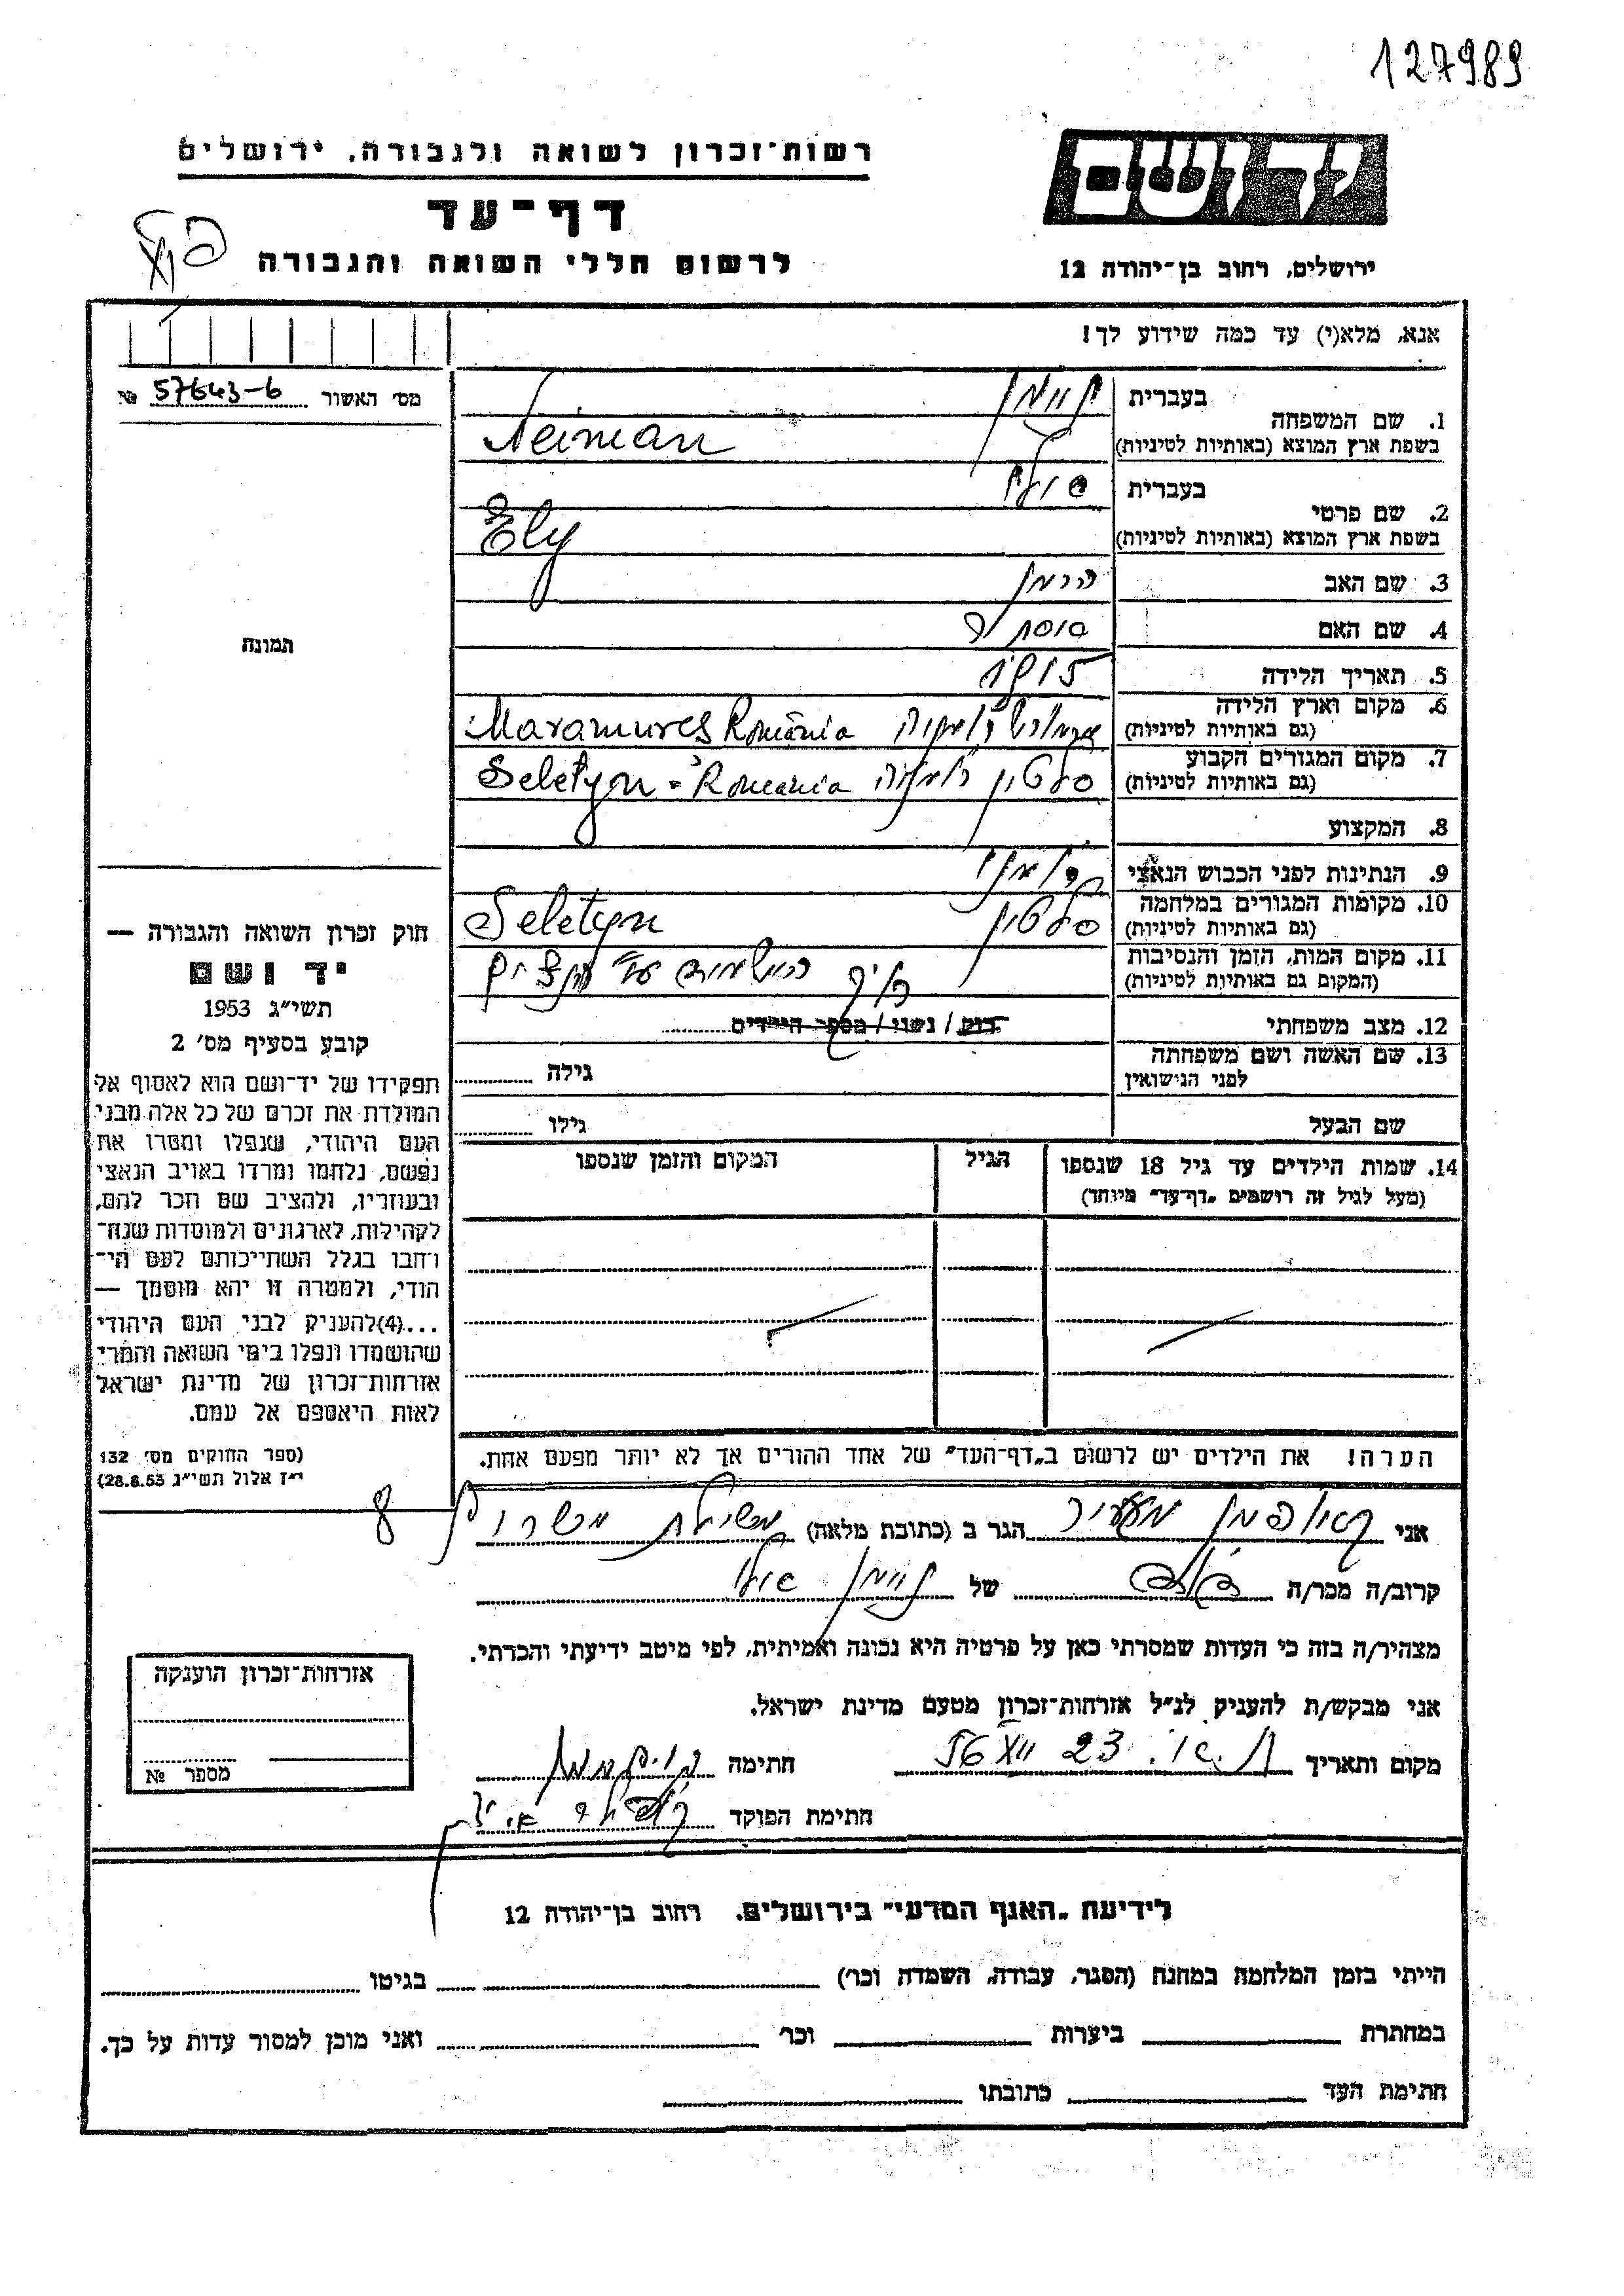 127989
רשות־זכרון לשואה ולגבורה, ירושלים
יד ושם
דף־עד
לרשום חללי השואה והגבורה
ירושלים, רחוב בן־יהודה 12
אנא, מלא(י) עד כמה שידוע לך!
מס׳ האשור 57643-6 №
1. שם המשפחה
בעברית ניימן
בשפת ארץ המוצא (באותיות לטיניות) Neiman
2. שם פרטי
בעברית
בשפת ארץ המוצא (באותיות לטיניות) Ely
3. שם האב הרמן
4. שם האם
5. תאריך הלידה
6. מקום וארץ הלידה
(גם באותיות לטיניות) רומניה Maramures România
7. מקום המגורים הקבוע
(גם באותיות לטיניות) סלטין רומניה Seletyn - Romania
8. המקצוע
9. הנתינות לפני הכבוש הנאצי רומני
10. מקומות המגורים במלחמה
(גם באותיות לטיניות) סלטין Seletyn
11. מקום המות, הזמן והנסיבות
(המקום גם באותיות לטיניות) הושמד ע״י נאצים
12. מצב משפחתי רוק / נשוי / מספר הילדים
13. שם האשה ושם משפחתה
לפני הנישואין
גילה
שם הבעל גילו
תמונה
חוק זכרון השואה והגבורה —
יד ושם
תשי״ג 1953
קובע בסעיף מס׳ 2
תפקידו של יד־ושם הוא לאסוף אל
המולדת את זכרם של כל אלה מבני
העם היהודי, שנפלו ומסרו את
נפשם, נלחמו ומרדו באויב הנאצי
ובעוזריו, ולהציב שם וזכר להם,
לקהילות, לארגונים ולמוסדות שנח־
רחבו בגלל השתייכותם לעם הי־
הודי, ולמטרה זו יהא מוסמך —
...(4)להעניק לבני העם היהודי
שהושמדו ונפלו בימי השואה והמרי
אזרחות־זכרון של מדינת ישראל
לאות היאספם אל עמם.
(ספר החוקים מס׳ 132
י״ז אלול תשי״ג 28.8.53)
14. שמות הילדים עד גיל 18 שנספו
(מעל לגיל זה רושמים „דף־עד״ מיוחד)
הגיל
המקום והזמן שנספו
הערה! את הילדים יש לרשום ב„דף־העד״ של אחד ההורים אך לא יותר מפעם אחת.
אני קאופמן הגר ב (כתובת מלאה) 8
קרוב/ה מכר/ה של ניימן
מצהיר/ה בזה כי העדות שמסרתי כאן על פרטיה היא נכונה ואמיתית, לפי מיטב ידיעתי והכרתי.
אני מבקש/ת להעניק לנ״ל אזרחות־זכרון מטעם מדינת ישראל.
מקום ותאריך 23 חתימה
חתימת הפוקד
אזרחות־זכרון הוענקה
מספר №
לידיעת „האגף המדעי״ בירושלים, רחוב בן־יהודה 12
הייתי בזמן המלחמה במחנה (הסגר, עבודה, השמדה וכר׳) בגיטו
במחתרת ביערות וכר׳ ואני מוכן למסור עדות על כך.
חתימת העד כתובתו